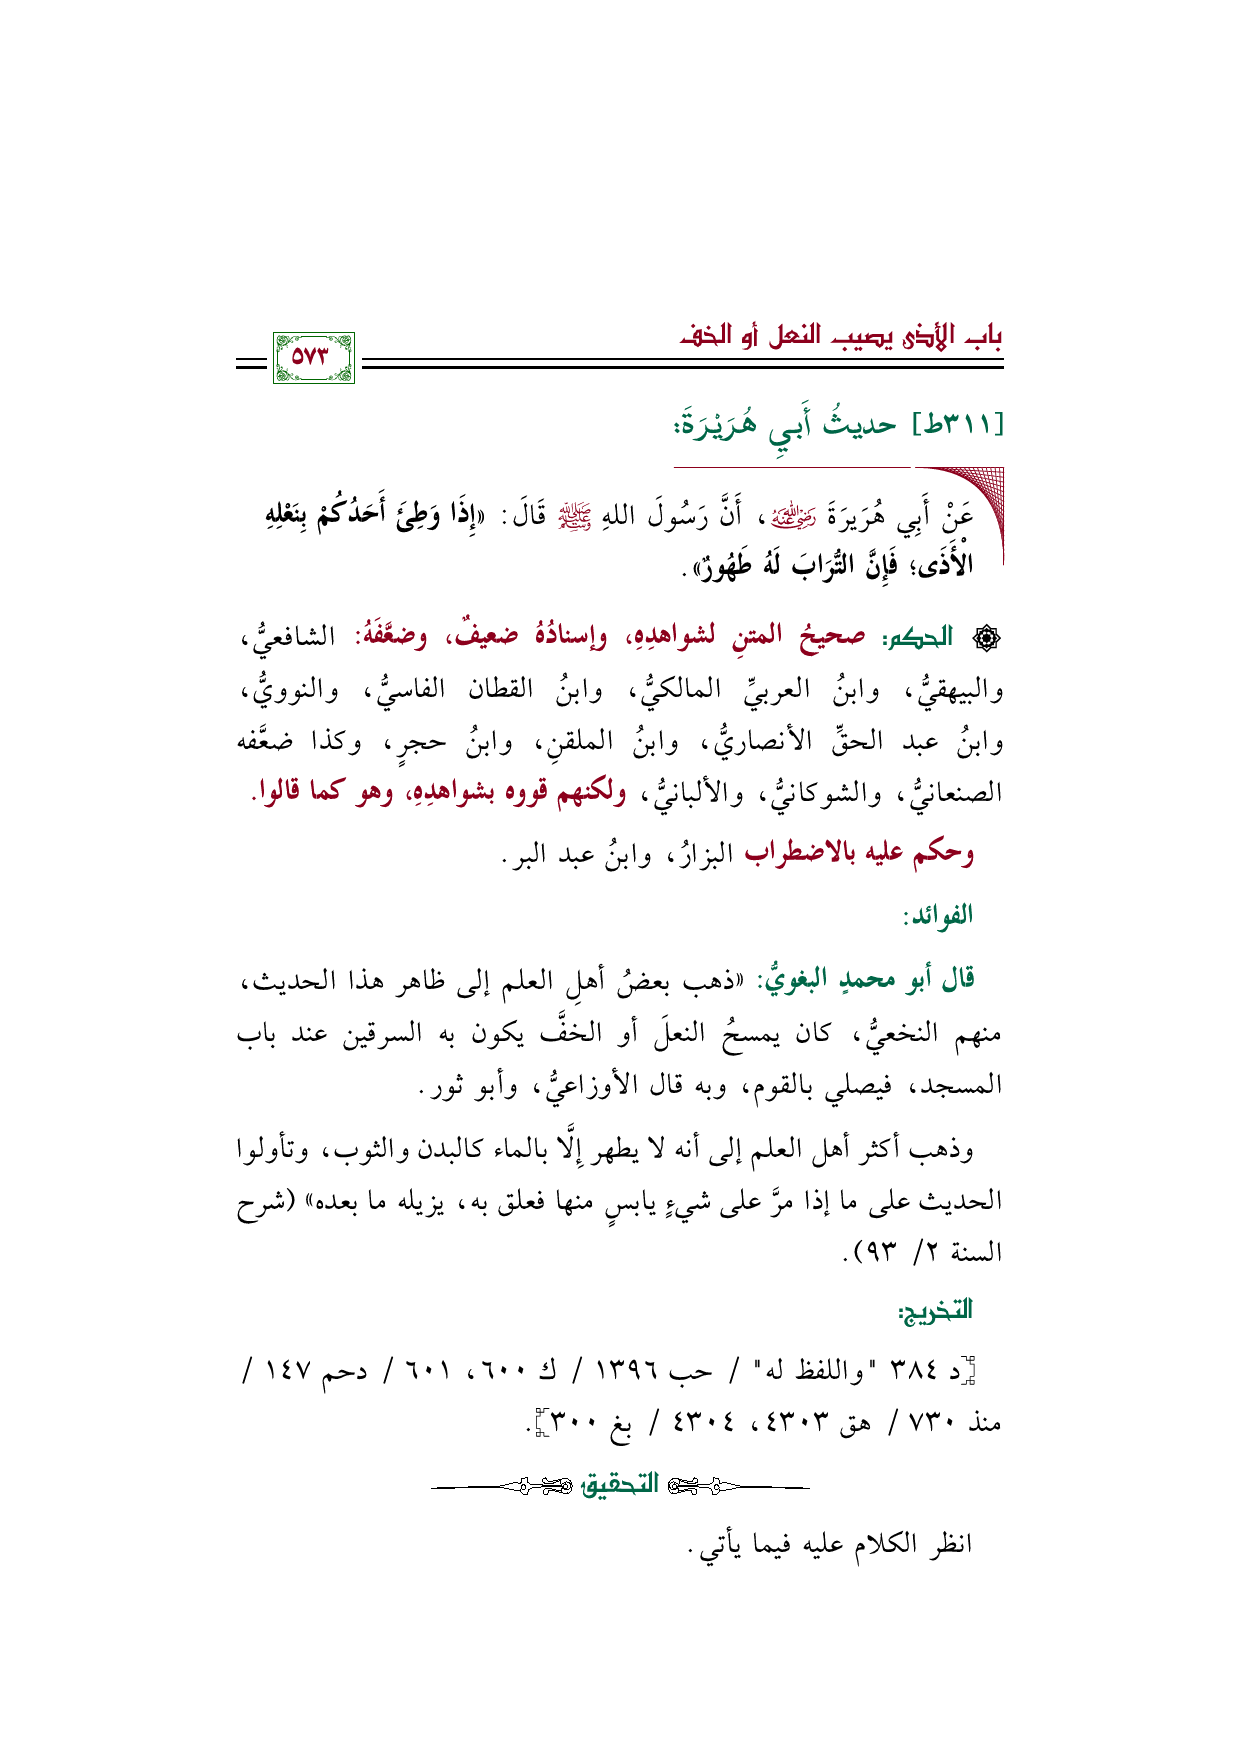 باب الأذى يصيب النعل أو الخف
٥٧٣
[٣١١ط] حديثُ أَبِي هُرَيْرَةَ:
عَنْ أَبِي هُرَيرَةَ رضي الله عنه، أَنَّ رَسُولَ اللهِ ﷺ قَالَ: «إِذَا وَطِئَ أَحَدُكُمْ بِنَعْلِهِ
الْأَذَى؛ فَإِنَّ التُّرَابَ لَهُ طَهُورٌ».
الحكم: صحيحُ المتنِ لشواهدِهِ، وإسنادُهُ ضعيفٌ، وضعَّفَهُ: الشافعيُّ،
والبيهقيُّ، وابنُ العربيِّ المالكيُّ، وابنُ القطان الفاسيُّ، والنوويُّ،
وابنُ عبد الحقِّ الأنصاريُّ، وابنُ الملقنِ، وابنُ حجرٍ، وكذا ضعَّفه
الصنعانيُّ، والشوكانيُّ، والألبانيُّ، ولكنهم قووه بشواهدِهِ، وهو كما قالوا.
وحكم عليه بالاضطراب البزارُ، وابنُ عبد البر.
الفوائد:
قال أبو محمدٍ البغويُّ: «ذهب بعضُ أهلِ العلم إلى ظاهر هذا الحديث،
منهم النخعيُّ، كان يمسحُ النعلَ أو الخفَّ يكون به السرقين عند باب
المسجد، فيصلي بالقوم، وبه قال الأوزاعيُّ، وأبو ثور.
وذهب أكثر أهل العلم إلى أنه لا يطهر إِلَّا بالماء كالبدن والثوب، وتأولوا
الحديث على ما إذا مرَّ على شيءٍ يابسٍ منها فعلق به، يزيله ما بعده» (شرح
السنة ٢/ ٩٣).
التخريج:
[د ٣٨٤ "واللفظ له" / حب ١٣٩٦ / ك ٦٠٠، ٦٠١ / دحم ١٤٧ /
منذ ٧٣٠ / هق ٤٣٠٣، ٤٣٠٤ / بغ ٣٠٠].
التحقيق
انظر الكلام عليه فيما يأتي.